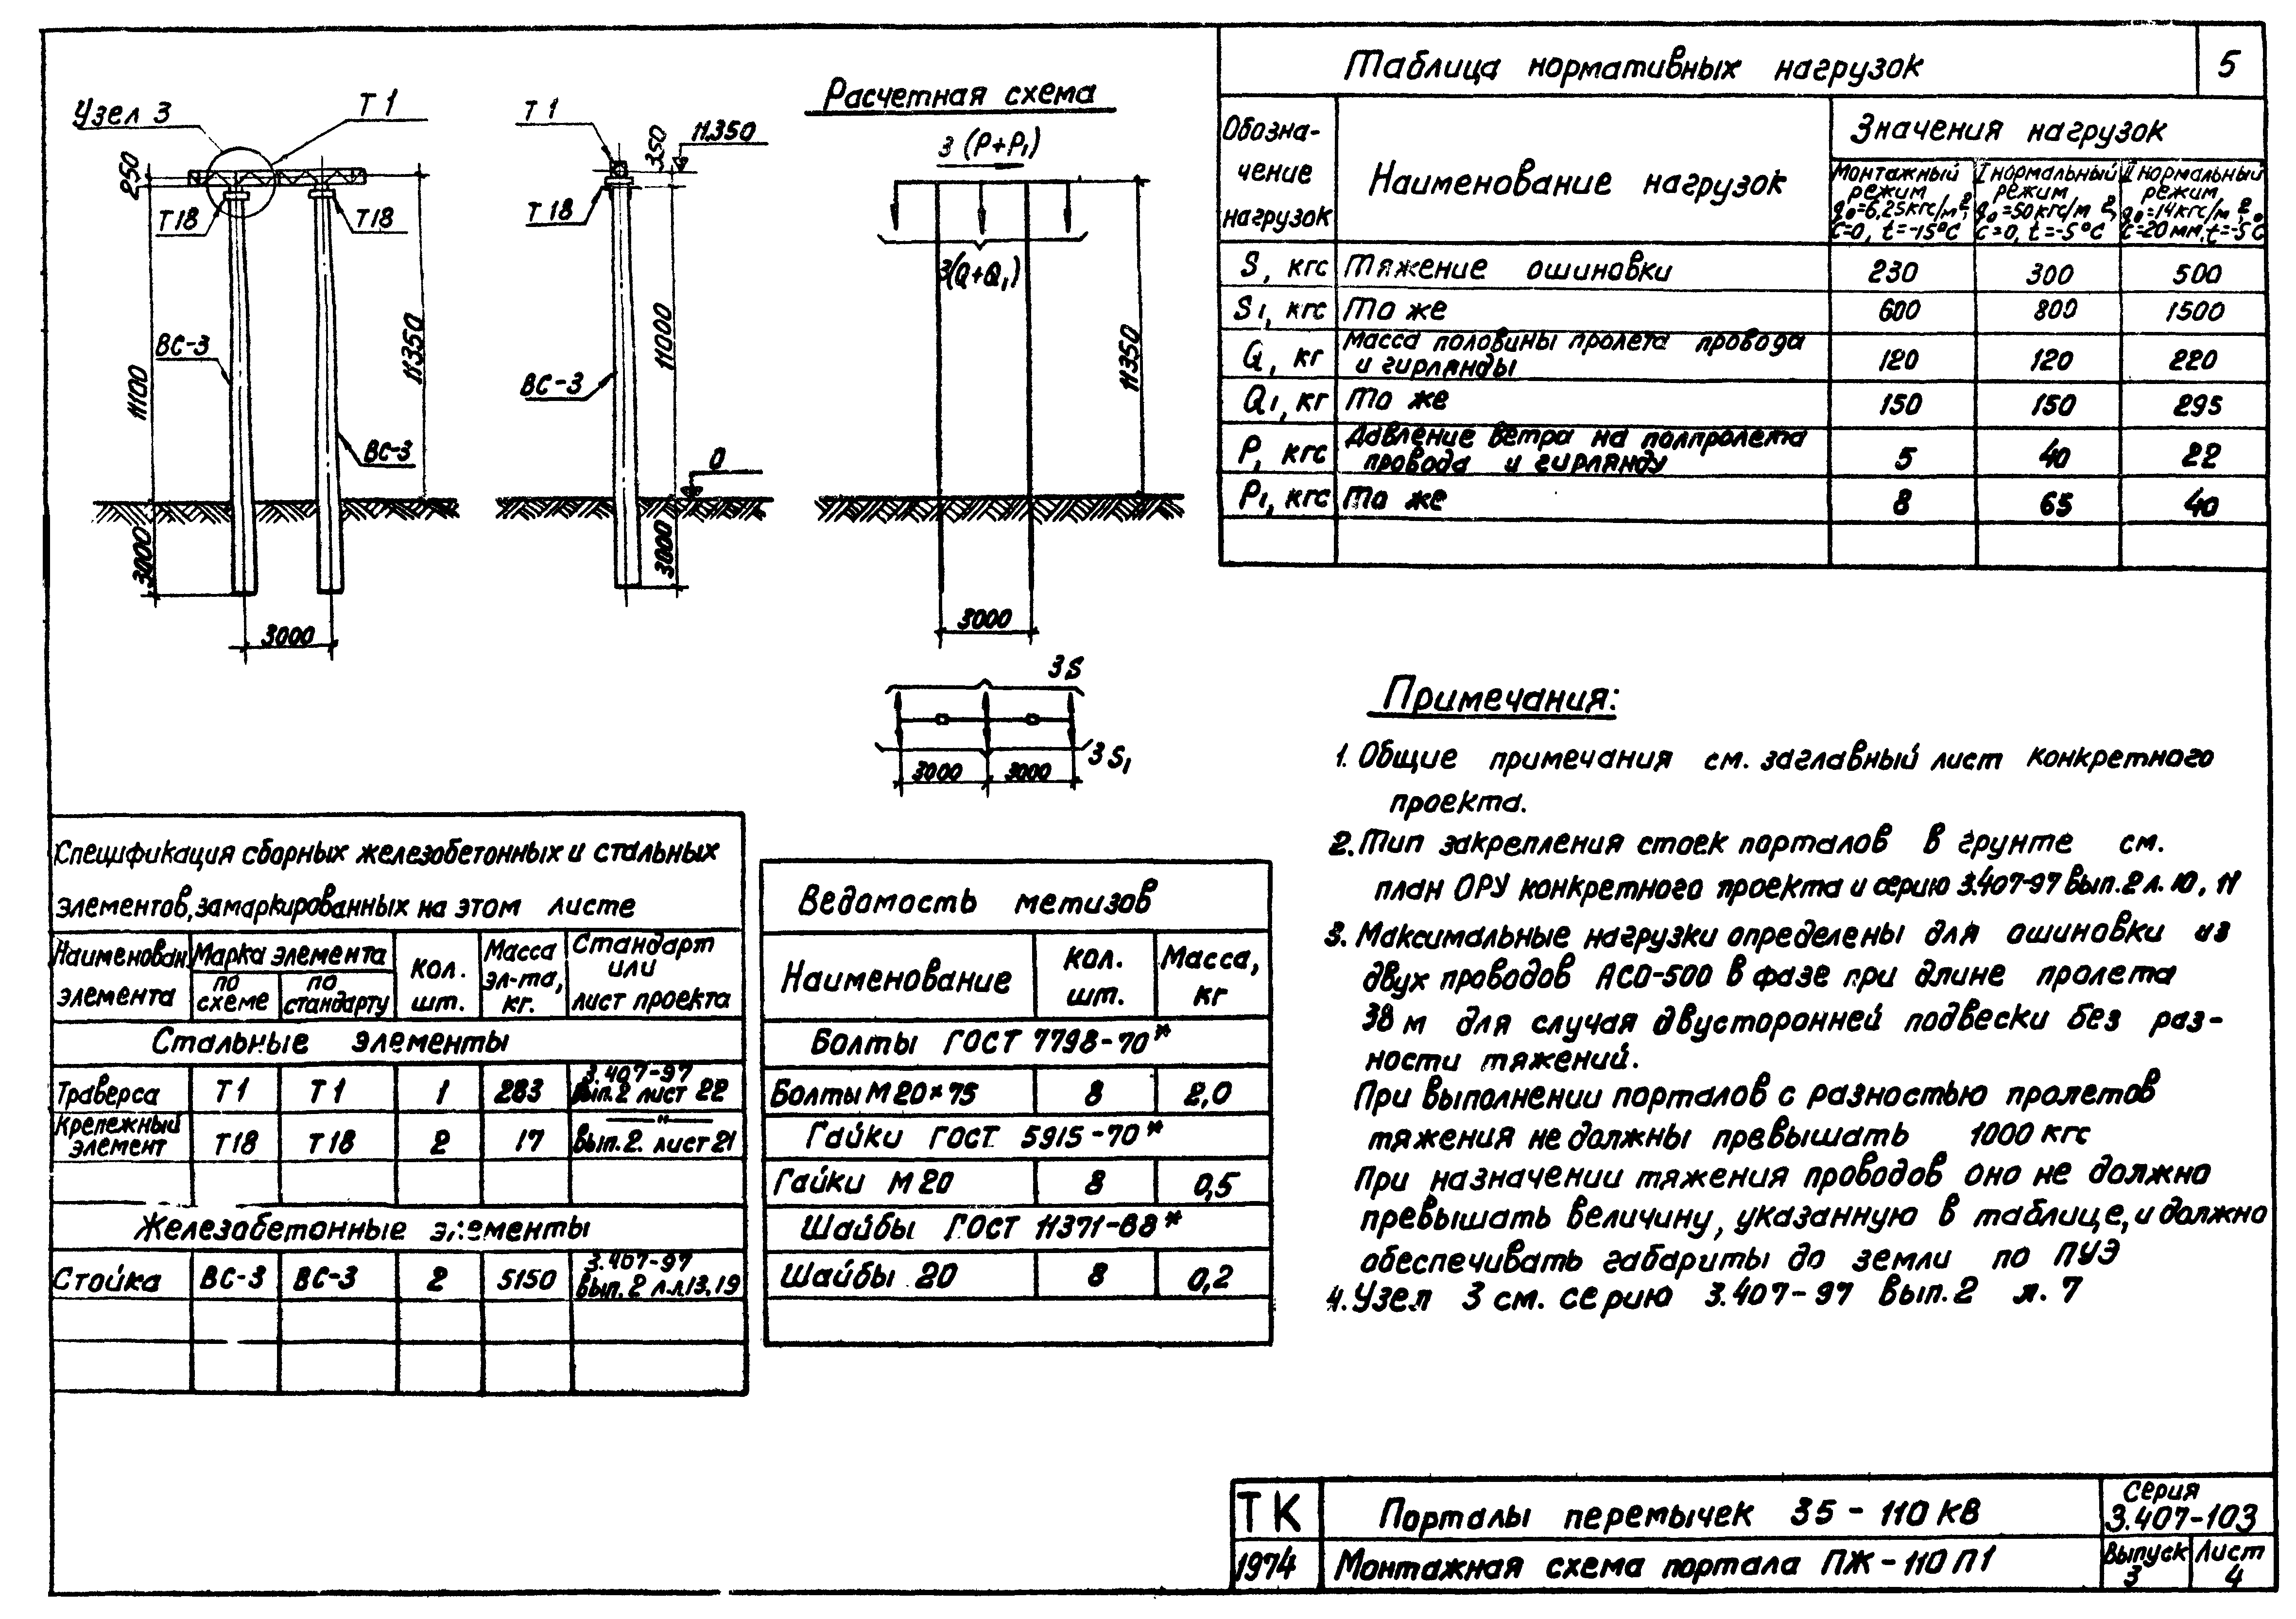 Таблица нормативных нагрузок
5
Обозна-
чение
нагрузок
Наименование нагрузок
Значения нагрузок
Монтажный
режим
q₀=6,25кгс/м²,
С=0, t=-15°С
I нормальный
режим
q₀=50кгс/м²,
С=0, t=-5°С
II нормальный
режим
q₀=14кгс/м²,
С=20мм, t=-5°С
S, кгс Тяжение ошиновки 230 300 500
S₁, кгс То же 600 800 1500
Q, кг Масса половины пролета провода
и гирлянды 120 120 220
Q₁, кг То же 150 150 295
P, кгс Давление ветра на полпролета
провода и гирлянду 5 40 22
P₁, кгс То же 8 65 40
Узел 3
Т 1
250
Т18
Т18
ВС-3
ВС-3
11100
11350
3000
3000
Т 1
350
11.350
Т18
ВС-3
11000
0
3000
Расчетная схема
3 (P+P₁)
3(Q+Q₁)
11350
3000
3 S
3 S₁
3000
3000
Примечания:
1. Общие примечания см. заглавный лист конкретного
проекта.
2. Тип закрепления стоек порталов в грунте см.
план ОРУ конкретного проекта и серию 3.407-97 вып.2 л. 10, 11
3. Максимальные нагрузки определены для ошиновки из
двух проводов АСО-500 в фазе при длине пролета
38 м для случая двусторонней подвески без раз-
ности тяжений.
При выполнении порталов с разностью пролетов
тяжения не должны превышать 1000 кгс
При назначении тяжения проводов оно не должно
превышать величину, указанную в таблице, и должно
обеспечивать габариты до земли по ПУЭ
4. Узел 3 см. серию 3.407-97 вып.2 л. 7
Спецификация сборных железобетонных и стальных
элементов, замаркированных на этом листе
Наименован
элемента
Марка элемента
по
схеме
по
стандарту
Кол.
шт.
Масса
эл-та,
кг.
Стандарт
или
лист проекта
Стальные элементы
Траверса Т1 Т1 1 283 3.407-97
вып.2 лист 22
Крепежный
элемент Т18 Т18 2 17 —"—
вып.2. лист 21
Железобетонные элементы
Стойка ВС-3 ВС-3 2 5150 3.407-97
вып.2 л.л13,19
Ведомость метизов
Наименование
Кол.
шт.
Масса,
кг
Болты ГОСТ 7798-70*
Болты М20×75 8 2,0
Гайки ГОСТ 5915-70*
Гайки М20 8 0,5
Шайбы ГОСТ 11371-68*
Шайбы 20 8 0,2
ТК
1974
Порталы перемычек 35-110 кВ
Монтажная схема портала ПЖ-110П1
Серия
3.407-103
Выпуск
3
Лист
4